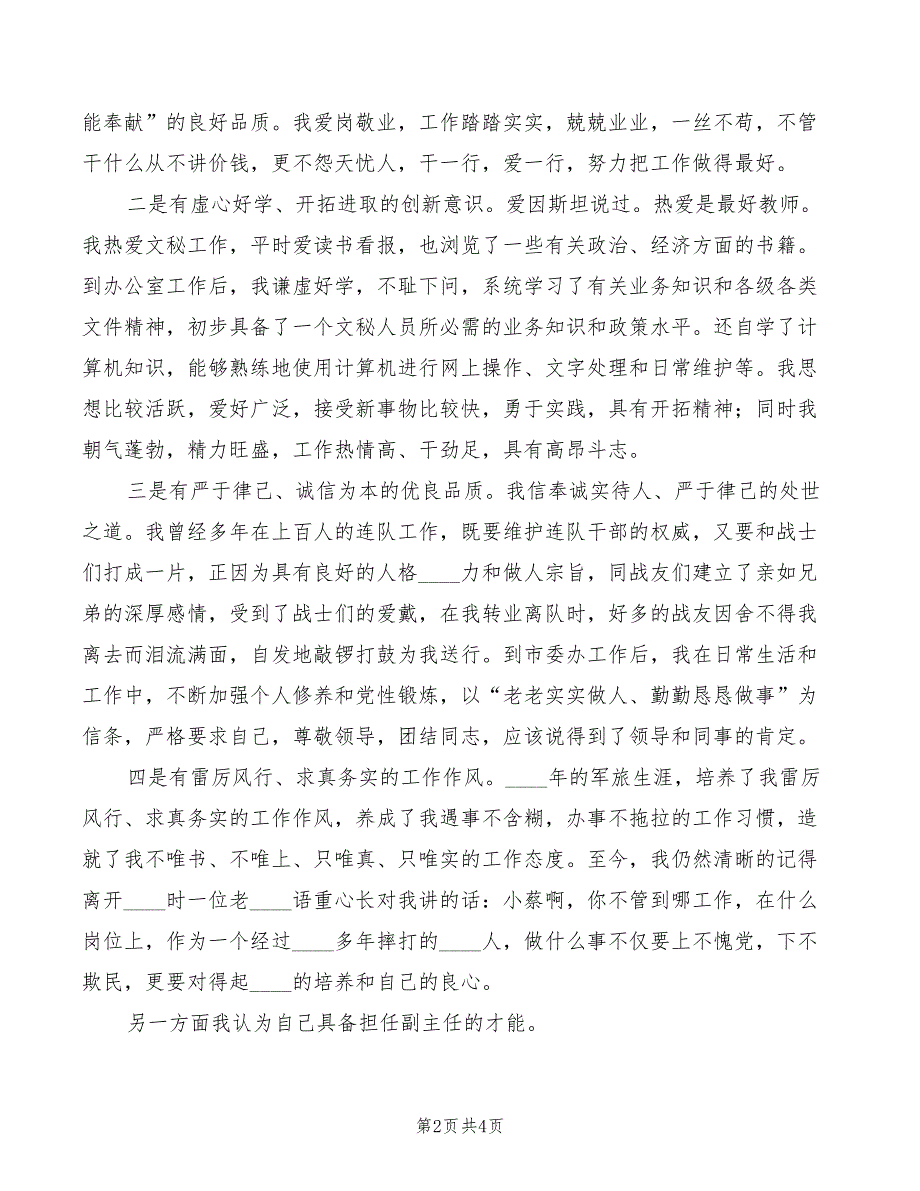 能奉献”的良好品质。我爱岗敬业，工作踏踏实实，兢兢业业，一丝不苟，不管
干什么从不讲价钱，更不怨天忧人，干一行，爱一行，努力把工作做得最好。
二是有虚心好学、开拓进取的创新意识。爱因斯坦说过。热爱是最好教师。
我热爱文秘工作，平时爱读书看报，也浏览了一些有关政治、经济方面的书籍。
到办公室工作后，我谦虚好学，不耻下问，系统学习了有关业务知识和各级各类
文件精神，初步具备了一个文秘人员所必需的业务知识和政策水平。还自学了计
算机知识，能够熟练地使用计算机进行网上操作、文字处理和日常维护等。我思
想比较活跃，爱好广泛，接受新事物比较快，勇于实践，具有开拓精神；同时我
朝气蓬勃，精力旺盛，工作热情高、干劲足，具有高昂斗志。
三是有严于律己、诚信为本的优良品质。我信奉诚实待人、严于律己的处世
之道。我曾经多年在上百人的连队工作，既要维护连队干部的权威，又要和战士
们打成一片，正因为具有良好的人格____力和做人宗旨，同战友们建立了亲如兄
弟的深厚感情，受到了战士们的爱戴，在我转业离队时，好多的战友因舍不得我
离去而泪流满面，自发地敲锣打鼓为我送行。到市委办工作后，我在日常生活和
工作中，不断加强个人修养和党性锻炼，以“老老实实做人、勤勤恳恳做事”为
信条，严格要求自己，尊敬领导，团结同志，应该说得到了领导和同事的肯定。
四是有雷厉风行、求真务实的工作作风。____年的军旅生涯，培养了我雷厉
风行、求真务实的工作作风，养成了我遇事不含糊，办事不拖拉的工作习惯，造
就了我不唯书、不唯上、只唯真、只唯实的工作态度。至今，我仍然清晰的记得
离开____时一位老____语重心长对我讲的话：小蔡啊，你不管到哪工作，在什么
岗位上，作为一个经过____多年摔打的____人，做什么事不仅要上不愧党，下不
欺民，更要对得起____的培养和自己的良心。
另一方面我认为自己具备担任副主任的才能。
第2页 共4页